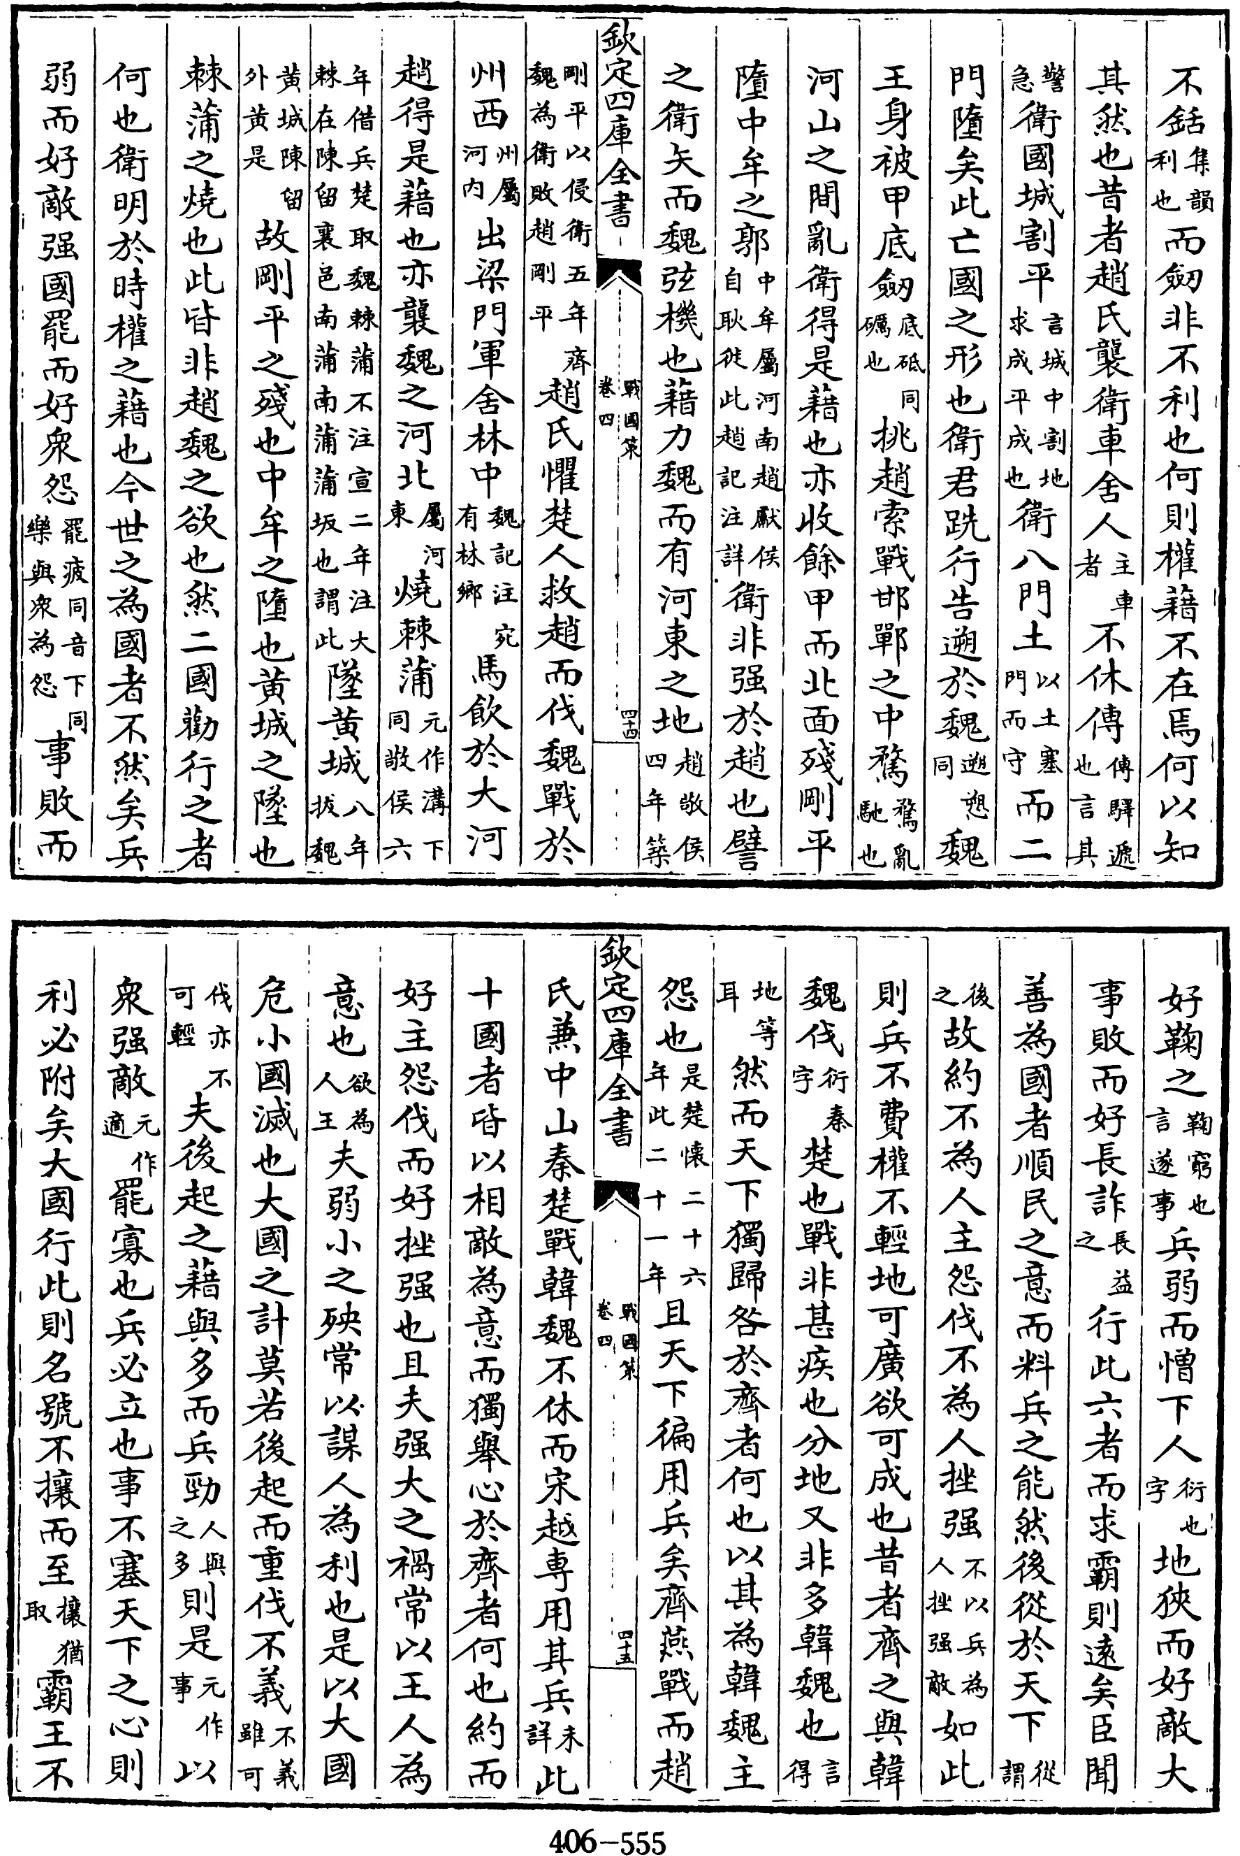 不銛集韻利也而劒非不利也何則權藉不在焉何以知
其然也昔者趙氏襲衛車舍人主車者不休傳傳驛遞也言其
警急衛國城割平言城中割地求成平成也衛八門土以土塞門而守而二
門墮矣此亡國之形也衛君跣行告遡於魏遡愬同魏
王身被甲底劒底砥同礪也挑趙索戰邯鄲之中騖騖亂馳也
河山之間亂衛得是藉也亦收餘甲而北面殘剛平
墮中牟之郭中牟屬河南趙獻侯自耿徙此趙記注詳衛非强於趙也譬
之衛矢而魏弦機也藉力魏而有河東之地趙敬侯四年築
欽定四庫全書 戰國策卷四 四十四
剛平以侵衛五年齊魏為衛敗趙剛平趙氏懼楚人救趙而伐魏戰於
州西州屬河内出梁門軍舍林中魏記注宛有林鄉馬飲於大河
趙得是藉也亦襲魏之河北屬河東燒棘蒲元作溝下同敬侯六
年借兵楚取魏棘蒲不注宣二年注大棘在陳留襄邑南蒲南蒲蒲坂也謂此墜黄城八年拔魏
黄城陳留外黄是故剛平之殘也中牟之墮也黄城之墜也
棘蒲之燒也此皆非趙魏之欲也然二國勸行之者
何也衛明於時權之藉也今世之為國者不然矣兵
弱而好敵强國罷而好衆怨罷疲同音下同樂與衆為怨事敗而
好鞠之鞠窮也言遂事兵弱而憎下人衍也字地狹而好敵大
事敗而好長詐長益之行此六者而求霸則遠矣臣聞
善為國者順民之意而料兵之能然後從於天下從謂
後之故約不為人主怨伐不為人挫强不以兵為人挫强敵如此
則兵不費權不輕地可廣欲可成也昔者齊之與韓
魏伐衍秦字楚也戰非甚疾也分地又非多韓魏也言得
地等耳然而天下獨歸咎於齊者何也以其為韓魏主
怨也是楚懷二十六年此二十一年且天下徧用兵矣齊燕戰而趙
欽定四庫全書 戰國策卷四 四十五
氏兼中山秦楚戰韓魏不休而宋越專用其兵未詳此
十國者皆以相敵為意而獨舉心於齊者何也約而
好主怨伐而好挫强也且夫强大之禍常以王人為
意也欲為人王夫弱小之殃常以謀人為利也是以大國
危小國滅也大國之計莫若後起而重伐不義不義雖可
伐亦不可輕夫後起之藉與多而兵勁人與之多則是元作事以
衆强敵元作適罷寡也兵必立也事不塞天下之心則
利必附矣大國行此則名號不攘而至攘猶取霸王不
406-555